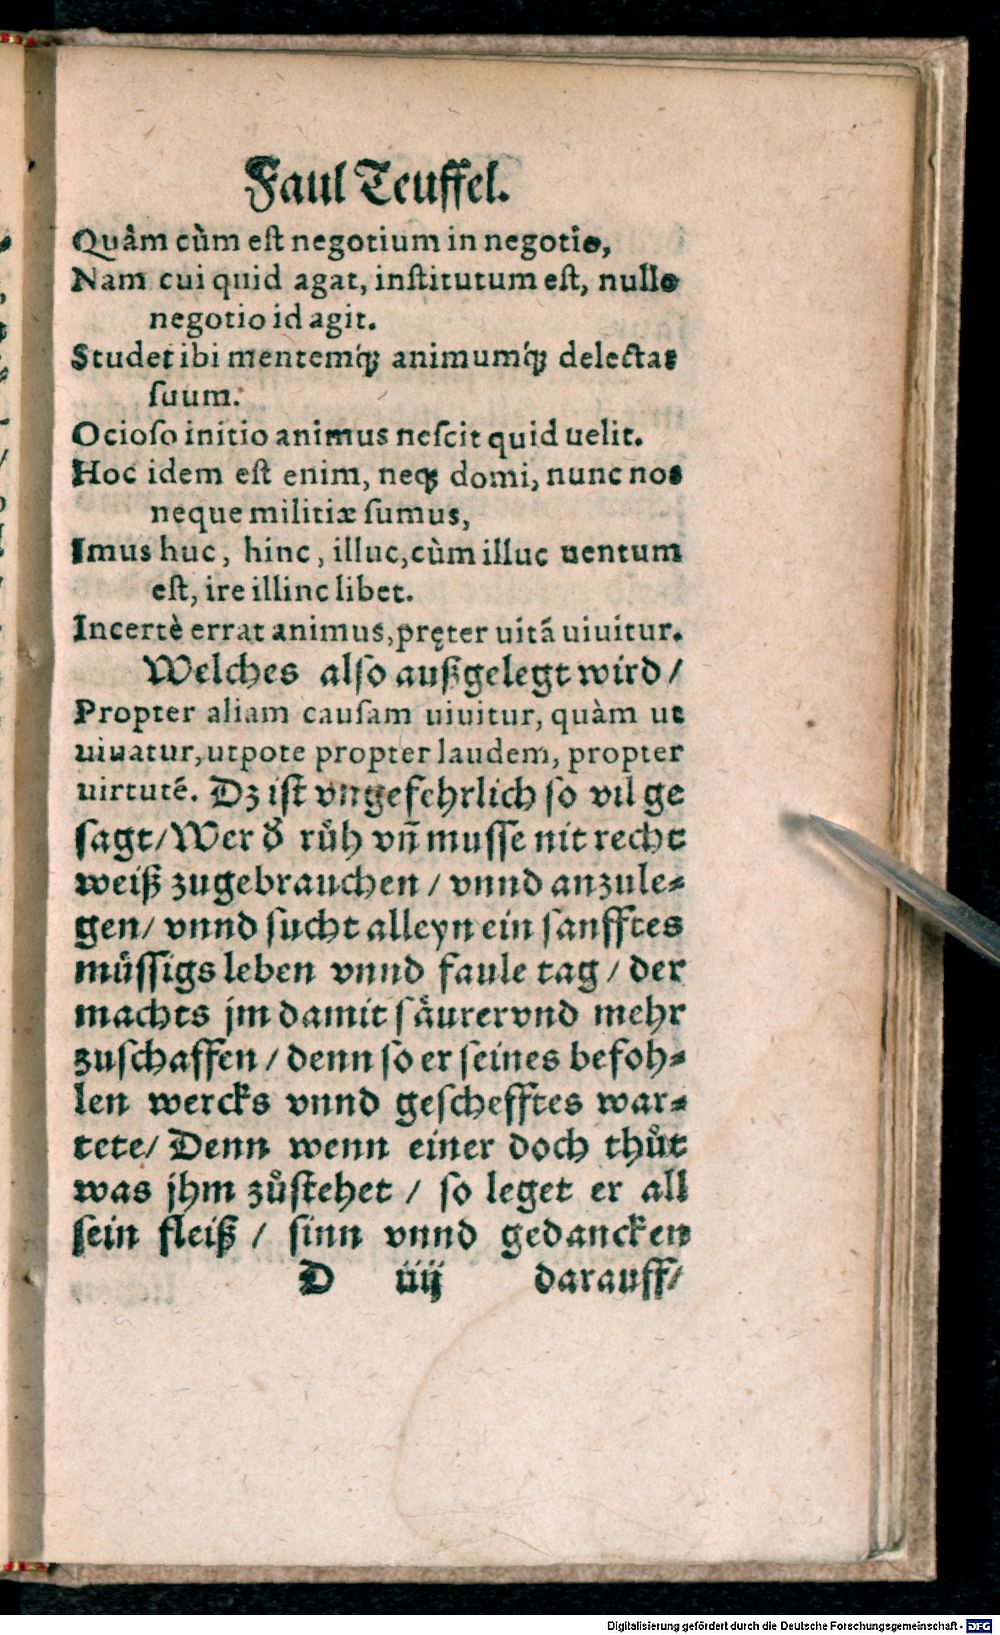 Faul Teuffel.
Quàm cùm est negotium in negotio,
Nam cui quid agat, institutum est, nullo
negotio id agit.
Studet ibi mentemq́ꝫ animumq́ꝫ delectat
suum.
Ocioso initio animus nescit quid uelit.
Hoc idem est enim, neqꝫ domi, nunc nos
neque militiæ sumus,
Imus huc, hinc, illuc, cùm illuc uentum
est, ire illinc libet.
Incertè errat animus, pręter uitā uiuitur.
Welches also außgelegt wird /
Propter aliam causam uiuitur, quàm ut
uiuatur, utpote propter laudem, propter
uirtutē. Dz ist vngefehrlich so vil ge
sagt / Wer d' růh vñ musse nit recht
weiß zugebrauchen / vnnd anzule⸗
gen / vnnd sucht alleyn ein sanfftes
muͤssigs leben vnnd faule tag / der
machts jm damit saͤurer vnd mehr
zuschaffen / denn so er seines befoh⸗
len wercks vnnd geschefftes war⸗
tete / Denn wenn einer doch thůt
was jhm zůstehet / so leget er all
sein fleiß / sinn vnnd gedancken
D iiij darauff /
Digitalisierung gefördert durch die Deutsche Forschungsgemeinschaft - DFG